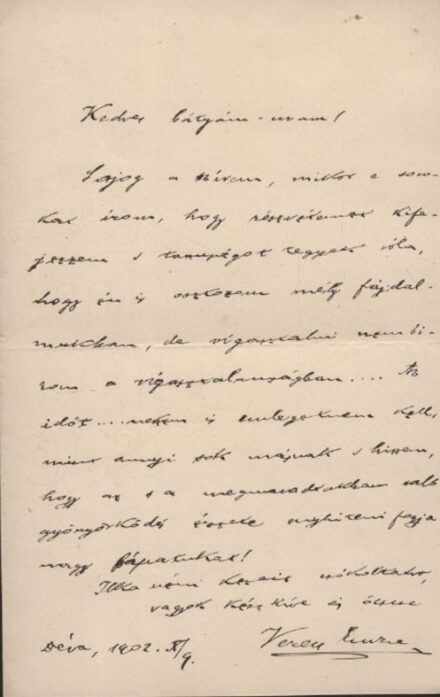 Kedves bátyám-uram!
Sajog a szívem, mikor e soro-
kat írom, hogy részvétemet kife-
jezzem s tanuságot tegyek róla,
hogy én is osztozom mély fájdal-
mukban, de vígasztalni nem bí-
rom a vígasztalanságban.... Az
időt.... nekem is emlegetnem kell,
mint annyi sok másnak s hiszem,
hogy az s a megmaradottakban való
gyönyörködés érzete enyhíteni fogja
nagy bánatukat!
Ilka néni kezeit csókolva,
vagyok kész híve és öccse
Déva, 1902. X/9. Veress Endre